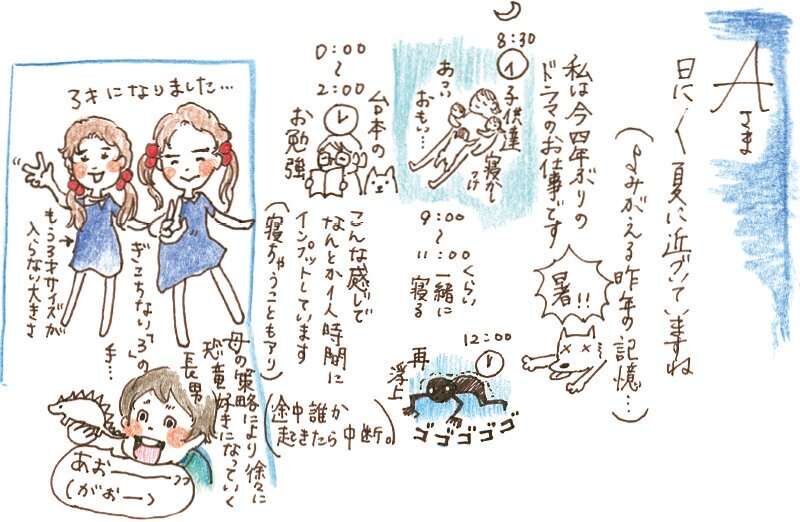 Aさま
日に〱夏に近づいていますね
(よみがえる昨年の記憶…)
暑!!
私は今四年ぶりの
ドラマのお仕事です
8:30
子供達
寝かしつけ
あつい
おもい…
9:00
〜
11:00くらい
一緒に
寝る
12:00
再
浮上
ゴゴゴゴゴ
0:00
〜
2:00
台本の
お勉強
こんな感じで
なんとか1人時間に
インプットしています
(寝ちゃうこともアリ)
(途中誰か
起きたら中断。)
3才になりました…
もう3才サイズが
入らない大きさ
ぎこちない「3」の
手…
母の策略により徐々に
恐竜好きになっていく
長男
あおーー
(がおー)